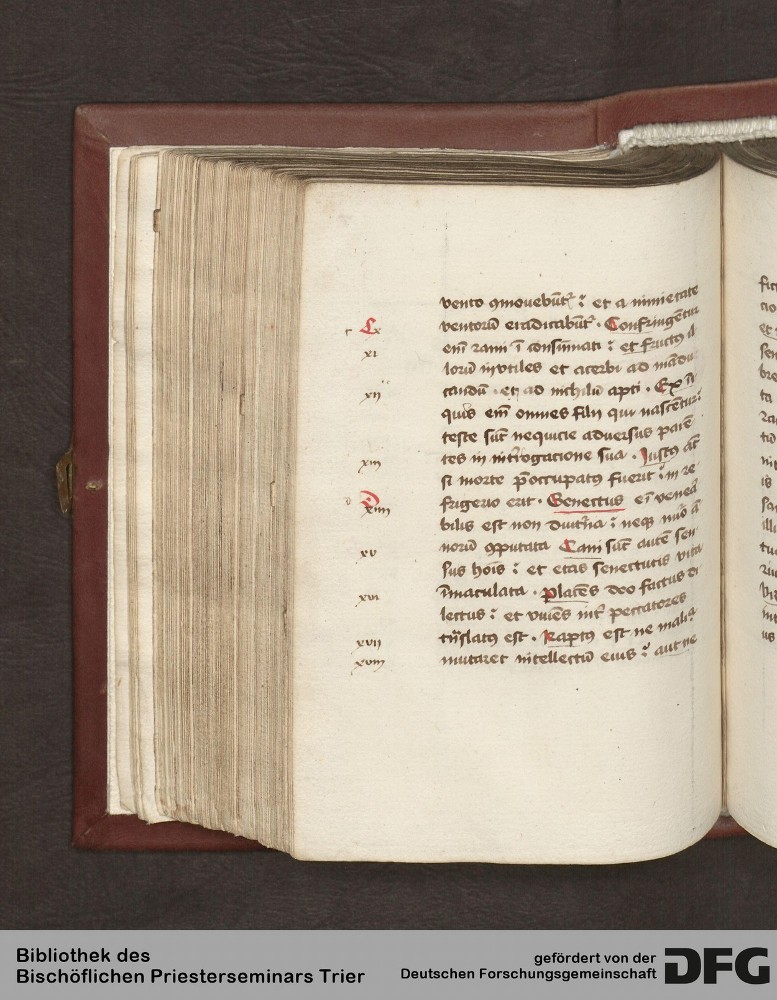 vento ꝯmouebūtᷣ : et a nimietate
ventorū eradicabūtᷣ . Confringētur
em̄ rami ī consūmati : et fructꝰ il
lorū inutiles et acerbi ad mādu
candū . et ad nichilū apti . Ex
quis em̄ omnes filii qui nascētur :
teste sūt nequicie aduersus parē
tes in int̄rogacione sua . Justꝰ aūt
si morte p̄occupatꝰ fuerit : in re
frigerio erit . Senectus ei᷑ venera
bilis est non diuturna : neqꝫ nūo an
norū ꝯputata Cani sūt autē sen
sus hoīs : et etas senectutis vita
īmaculata . placēs deo factus di
lectus : et viuēs int̄ peccatores
trāslatꝰ est . Raptꝰ est ne malicia
mutaret intellectū eius : aut ne
c x
xi
xii
xiii
D xiiii
xv
xvi
xvii
xviii
Bibliothek des
Bischöflichen Priesterseminars Trier
gefördert von der
Deutschen Forschungsgemeinschaft
DFG